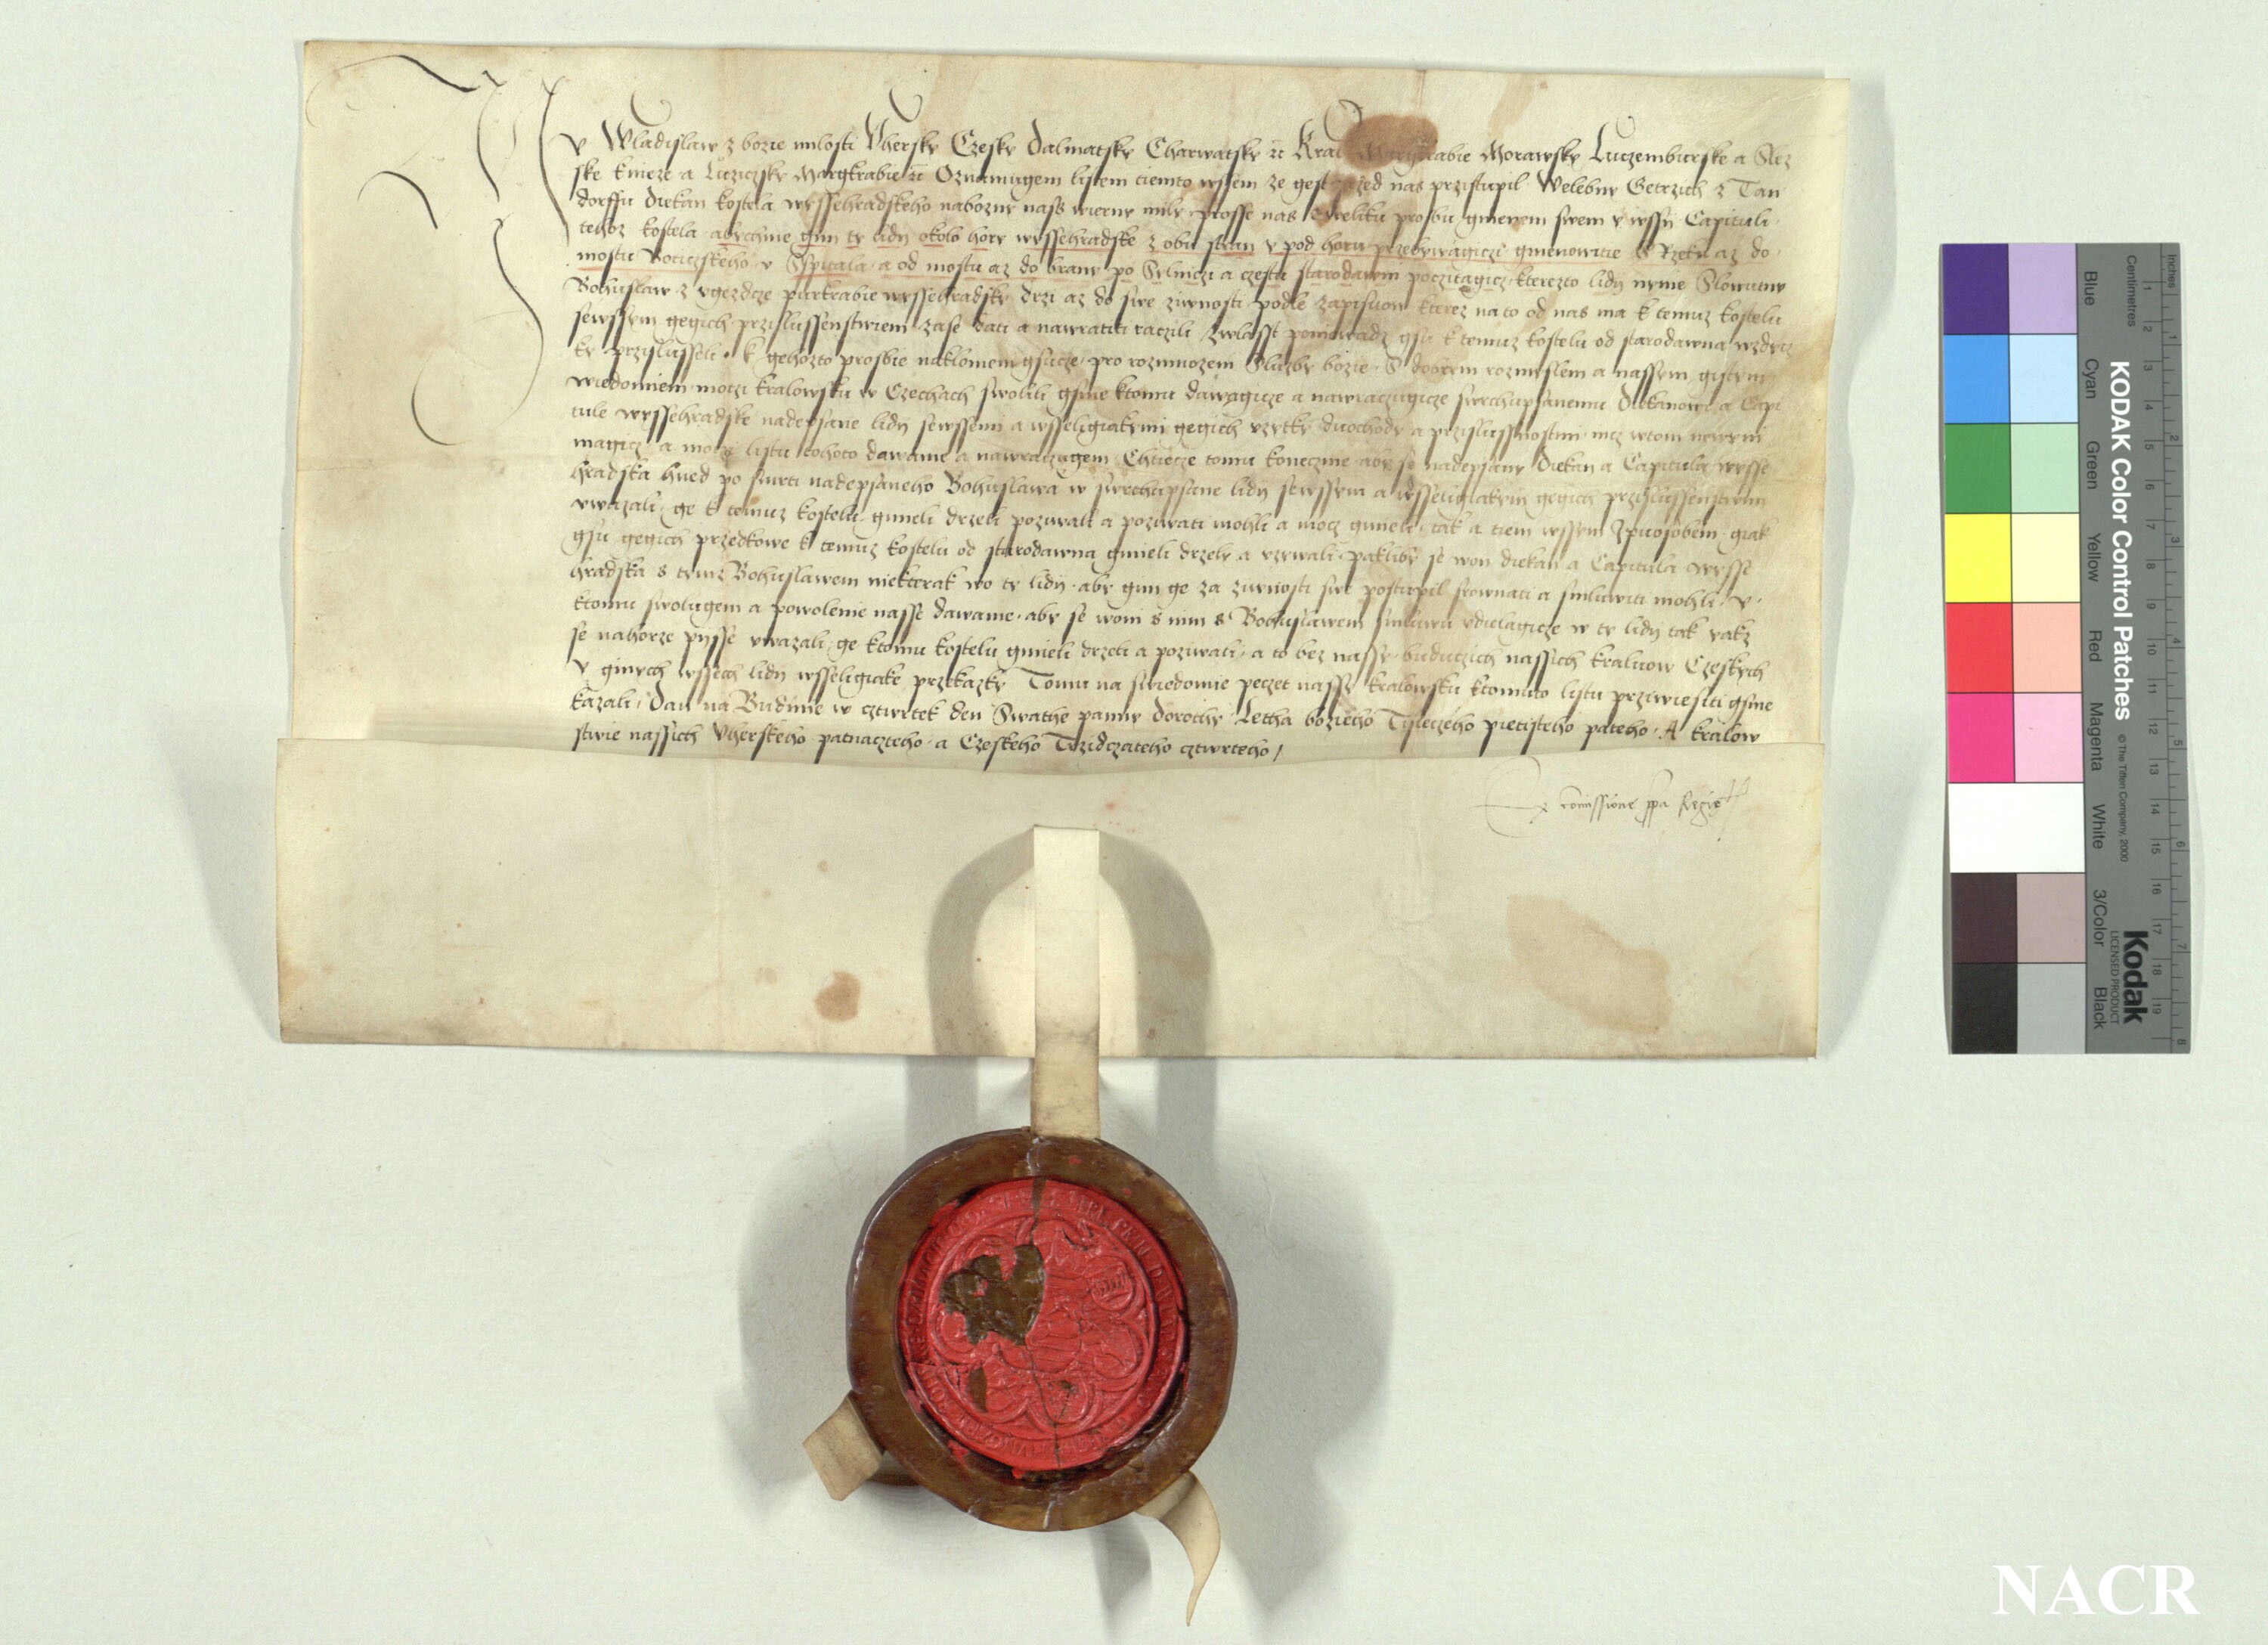 My Wladislaw z bozie milosti Vhersky Czesky Dalmatsky Charwatsky ꝛc Kral Margkrabie Morawsky Luczemburske a Slez
ske knieze a Luziczky Margkrabie ꝛc Oznamugem listem tiemto wssem ze gest przed nas przistupil Welebny Getrzich z Tan
dorffu Diekan kostela wyssehradskeho nabozny nass wierny mily prosse nas s welikw prosbu gmenem swem y wssij Capituli
tehoz kostela abychme gim ty lidij okolo hory wyssehradske z obu stran y pod horu przebywagiczi gmenowitie S Rzeku az do
mostu Boticzskeho v Sspitala a od mostu az do brany po Sylniczi a czestu starodawm poczitagicz kterezto lidij nynie Slowutny
Bohuslaw z vgezdcze purkrabie wyssehradsky drzi az do swe ziwnosti podle zapisuow kterez na to od nas ma k temuz kostelu
sewssym gegich przislussenstwiem zase dati a nawratiti raczili zwlasst poniewadz gsu k temuz kostelu od starodawna wzdycz
ky przislusseli k gehozto prosbie naklonieni gsucze pro rozmnozeni Sluzby bozie S dobrym rozmyslem a nassym gistym
wiedomiem moczi kralowsku w Czechach swolili gsme ktomu dawagicze a nawraczugicze swrchupsanemu Diekanowi a Capi
tule wyssehradske nadepsane lidij sewssemi a wsseligiakymi gegich vzytky duochody a przislussnostmi nicz wtom newyni
magicz a moczi listu tohoto dawame a nawraczugem Chtiecze tomu koneczne aby se nadepsany Diekan a Capitula wysse
hradska hned po smrti nadepsaneho Bohuslawa w swrchupsane lidij sewssym a wsseligiakym gegich przislussenstwim
vwazali ge k temuz kostelu gmieli drzeli pozwali a pozwati mohli a mocz gmieli tak a tiem wssym Zpuosobem giak
gsu gegich przedkowe k temuz kostelu od starodawna gmieli drzely a vzywali pakliby se won diekan a Capitula wysse
hradska s tymz Bohuslawem niekterak wo ty lidij aby gim ge za ziwnosti swe postupil srownati a smluwiti mohli y
ktomu swolugem a powolenie nasse dawame aby se woni s nim s Bohuslawem smluwu vdielagicze w ty lidij tak yakz
se nahorze pijsse vwazali ge ktomu kostelu gmieli drzeli a pozwali a to bez nassy buduczich nassich kraluow Czeskych
y ginych wssech lidij wsseligiake przekazky Tomu na swiedomie peczet nassy kralowsku ktomuto listu przywiesiti gsme
kazali Dan na Budinie w cztwrtek den Swathe panny Dorothy Letha bozieho Tisiczeho pietisteho pateho A kralow
stwie nassich Vherskeho patnaczteho a Czeskeho Trzidczateho cztwrteho
Ex comissione ppa Regie
Blue
Cyan
Green
Yellow
Red
Magenta
White
3/Color
Black
KODAK Color Control Patches
© The Tiffen Company, 2000
Kodak
LICENSED PRODUCT
Centimetres
Inches
NACR